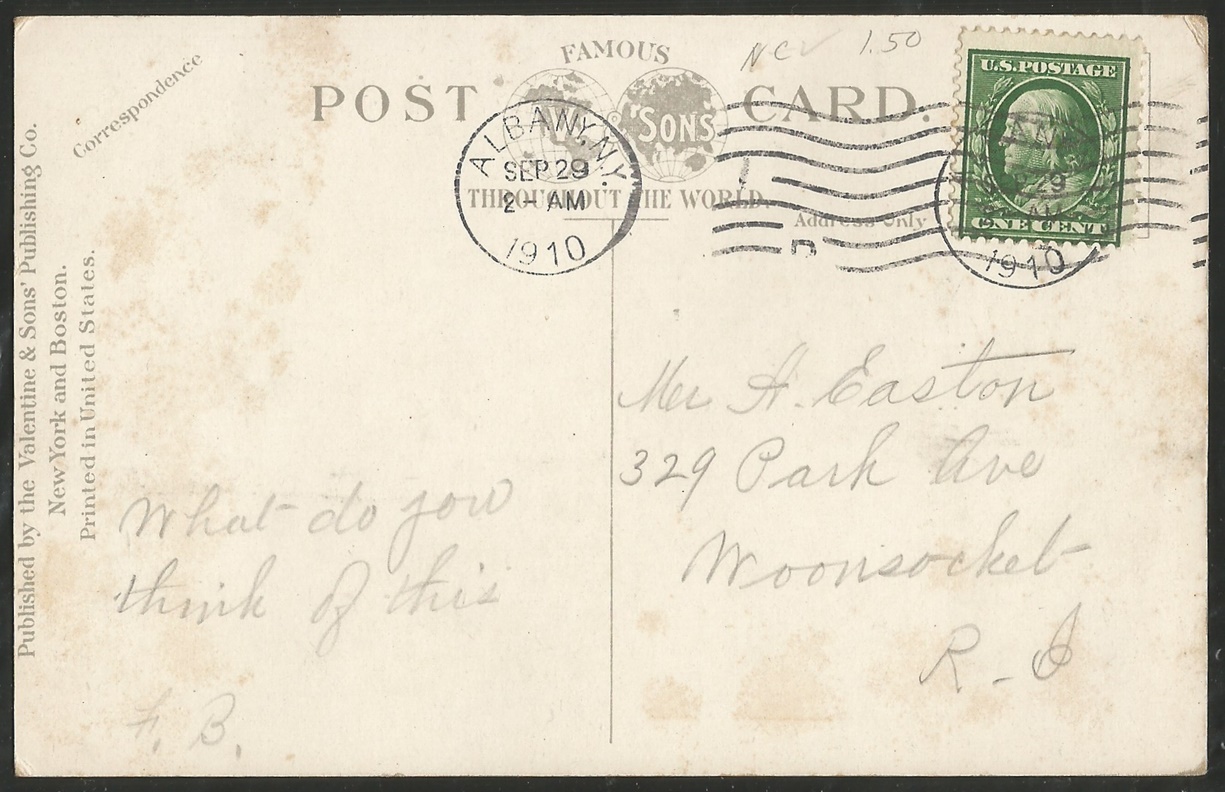 NCV 1.50
FAMOUS
POST CARD.
'SONS
THROUGHOUT THE WORLD.
Correspondence
Address Only
U.S. POSTAGE
ONE CENT
ALBANY, N.Y.
SEP 29
2 - AM
1910
D
29
AM
1910
Published by the Valentine & Sons' Publishing Co.
New York and Boston.
Printed in United States.
What do you
think of this
F. B.
H. Easton
329 Park Ave
Woonsocket
R-I